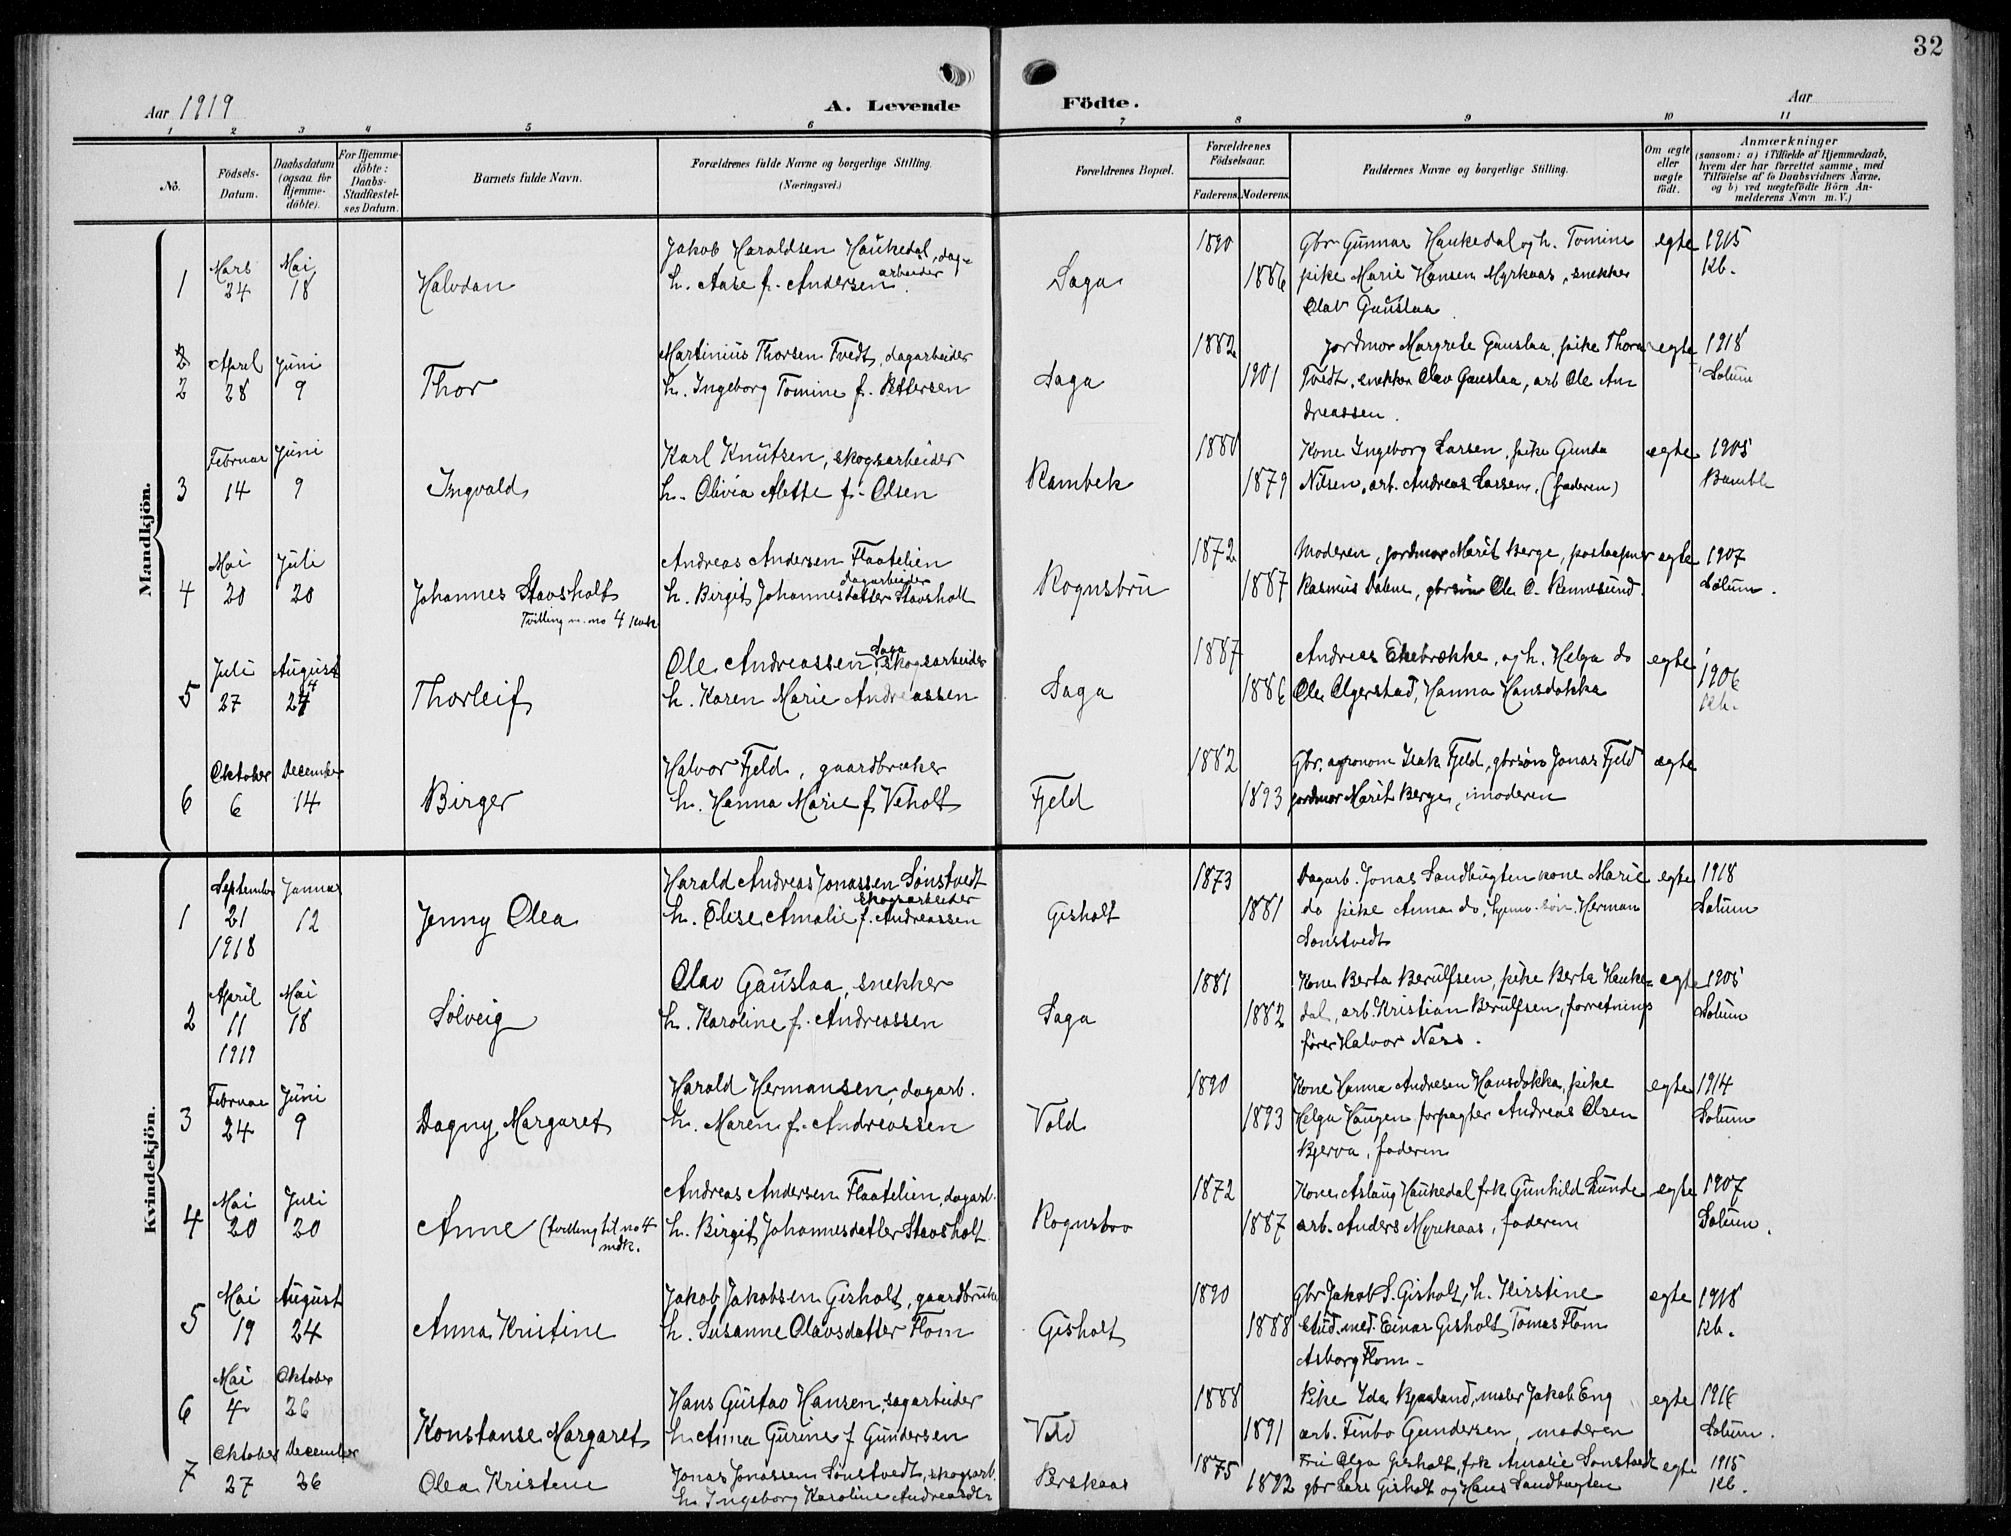 32
Aar 1919
A. Levende Födte.
Aar
1 2 3 4 5 6 7 8 9 10 11
No.
Födsels-Datum.
Daabsdatum (ogsaa for Hjemme-döbte).
For Hjemme-döbte: Daabs-Stadfæstel-ses Datum.
Barnets fulde Navn.
Forældrenes fulde Navne og borgerlige Stilling.
(Næringsvei.)
Forældrenes Bopæl.
Forældrenes Födselsaar.
Faderens. Moderens.
Faddernes Navne og borgerlige Stilling.
Om ægte eller uægte födt.
Anmærkninger
(saasom: a) i Tilfælde af Hjemmedaab, hvem der har forrettet samme, med Tilföielse af to Daabsvidners Navne, og b) ved uægtefödte Börn An-melderens Navn m. V.)
Mandkjön.
1 Mars 24 Mai 18 Halvdan
Jakob Haraldsen Haukedal, dag-arbeider
h. Aase f. Andersen.
Saga 1890 1886
Gbr Gunnar Haukedal og h. Tomine
pike Marie Hansen Myrkaas, snekker
Olav Gauslaa
egte 1915 Kb.
2
2 April 28 Juni 9 Thor
Martinius Thorsen Tvedt, dagarbeider
h. Ingeborg Tomine f. Pettersen
Saga 1882 1901
Jordmor Margrete Gauslaa, pike Thora
Tvedt, snekker Olav Gauslaa, arb Ole An
dreassen.
egte 1918 Solum
3 Februar 14 Juni 9 Ingvald
Karl Knutsen, skogsarbeider
h. Olivia Alette f. Olsen
Rambek 1880 1879
Kone Ingeborg Larsen, pike Gunda
Nilsen, arb. Andreas Larsen, (faderen)
egte 1905 Bamble
4 Mai 20 Juli 20 Johannes Stavsholt
Tvilling m. no 4 kvk
Andreas Andersen Flaatelien
dagarbeider
h. Birgit Johannesdatter Stavsholt
Rognsbru 1872 1887
Moderen, jordmor Marit Berge, postaapner
Rasmus Dalene, gbrsön Ole O. Rennesund.
egte 1907 Solum.
5 Juli 27 August 24 Thorleif
Ole Andreassen, Saga skogsarbeider
h. Karen Marie Andreassen
Saga 1887 1886
Andreas Ekebrække, og h. Helga do
Ole Olgerstad, Hanna Hansdokka
egte 1906 Kb.
6 Oktober 6 December 14 Birger
Halvor Fjeld, gaardbruker
h. Hanna Marie f. Veholt
Fjeld 1882 1893
Gbr. agronom Isak Fjeld, gbrsön Jonas Fjeld
jordmor Marit Berge, moderen
ægte
Kvindekjön.
1 September 21 1918 Januar 12 Jenny Olea
Harald Andreas Jonassen Sönstvedt
skogsarbeider
h. Elise Amalie f. Andreassen
Gisholt 1873 1881
Dagarb. Jonas Sandbugten kone Marie
do pike Anna do, hjemv. sön Herman
Sonstvedt
egte 1918 Solum
2 April 11 1919 Mai 18 Solveig
Olav Gauslaa, snekker
h. Karoline f. Andreassen
Saga 1881 1882
Kone Berta Berulfsen, pike Berta Hauke-
dal, arb. Kristian Berulfsen, forretnings
förer Halvor Næss.
egte 1905 Solum
3 Februar 24 Juni 9 Dagny Margaret
Harald Hermansen, dagarb.
h. Maren f. Andreassen
Vold 1890 1893
Kone Hanna Andresen Hansdokka, pike
Helga Haugen forpagter Andreas Olsen
Bjerva, faderen
egte 1914 Solum
4 Mai 20 Juli 20 Anne (tvilling til no 4 mdk.
Andreas Andersen Flaatelien, dagarb.
h. Birgit Johannesdatter Stavsholt
Rognsboo 1872 1887
Kone Aslaug Haukedal frk Gunhild Lunde
arb. Anders Myrkaas, faderen
egte 1907 Solum.
5 Mai 19 August 24 Anna Kristine
Jakob Jakobsen Gisholt, gaardbruker
h. Susanne Olavsdatter Flom
Gisholt 1890 1888
Gbr Jakob S. Gisholt, h. Kirstine
Stud. med. Einar Gisholt, Tomas Flom
Asborg Flom.
egte 1918 Kb.
6 Mai 4 Oktober 26 Konstanse Margaret
Hans Gustav Hansen, sagarbeider
h. Anna Gurine f. Gundersen
Vold 1888 1891
Pike Ida Bjaaland, maler Jakob Eng
arb. Finbo Gundersen, moderen
egte 1916 Solum.
7 Oktober 27 December 26 Olea Kristene
Jonas Jonassen Sonstvedt, skogsarb.
h. Ingeborg Karoline Andreasdtr
Perskaas 1875 1892
Fru Olga Gisholt, frk Amalie Sonstvedt
gbr Lars Gisholt og Hans Sandbugten
egte 1915 Kb.